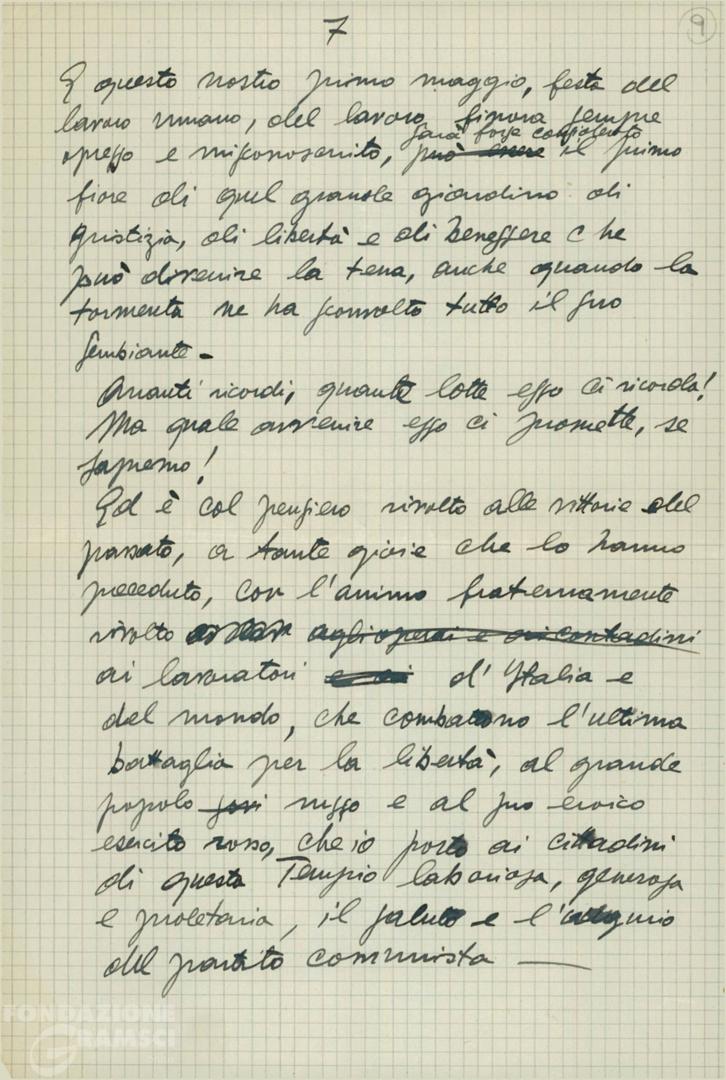 7
9
E questo nostro primo maggio, festa del
lavoro umano, del lavoro finora sempre
sarà forse considerato
oppresso e misconosciuto, può essere il primo
fiore di quel grande giardino di
giustizia, di libertà e di benessere che
può divenire la terra, anche quando la
tormenta ne ha sconvolto tutto il suo
sembiante -
Quanti ricordi, quante lotte esso ci ricorda!
Ma quale avvenire esso ci promette, se
sapremo!
Ed è col pensiero rivolto alle vittorie del
passato, a tante gioie che lo hanno
preceduto, con l'animo fraternamente
rivolto agli operai e ai contadini
ai lavoratori e ai d'Italia e
del mondo, che combattono l'ultima
battaglia per la libertà, al grande
popolo russo e al suo eroico
esercito rosso, che io porto ai cittadini
di questa Tempio laboriosa, generosa
e proletaria, il saluto e l'augurio
del partito comunista —
FONDAZIONE
GRAMSCI